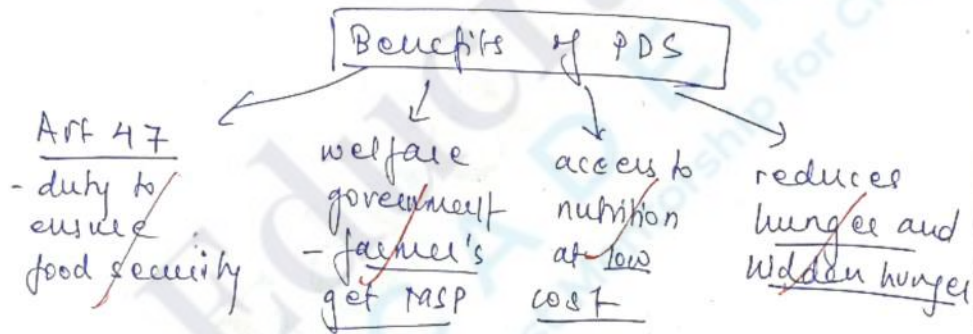 Benefits of PDS
Art 47
- duty to
ensure
food security
welfare
government
- farmer's
get MSP
access to
nutrition
at low
cost
reduces
hunger and
hidden hunger